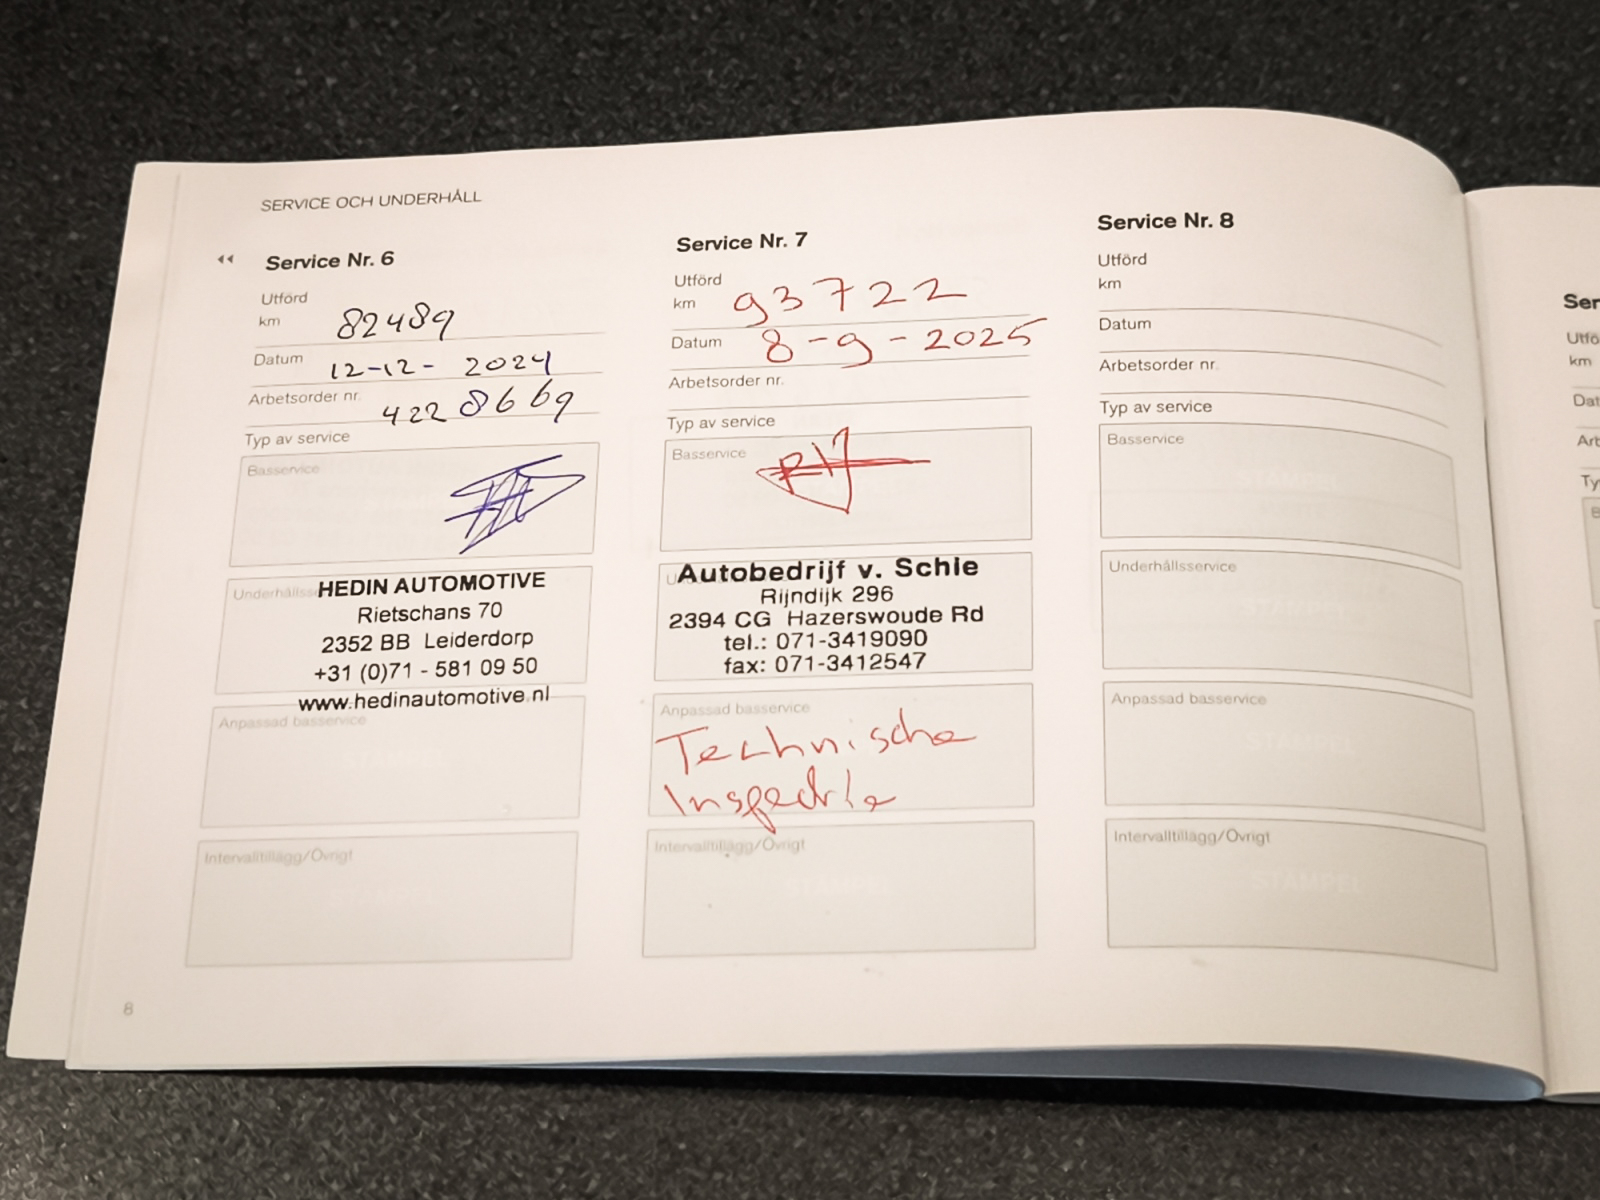 SERVICE OCH UNDERHÅLL
Service Nr. 6
Utförd
km 82489
Datum 12-12-2024
Arbetsorder nr. 4228669
Typ av service
Basservice
Underhållss
HEDIN AUTOMOTIVE
Rietschans 70
2352 BB Leiderdorp
+31 (0)71 - 581 09 50
www.hedinautomotive.nl
Anpassad basservice
STAMPEL
Intervalltillägg/Övrigt
STAMPEL
8
Service Nr. 7
Utförd
km 93722
Datum 8-9-2025
Arbetsorder nr.
Typ av service
Basservice
Autobedrijf v. Schie
Rijndijk 296
2394 CG Hazerswoude Rd
tel.: 071-3419090
fax: 071-3412547
Anpassad basservice
Technische
Inspectie
Intervalltillägg/Övrigt
STAMPEL
Service Nr. 8
Utförd
km
Datum
Arbetsorder nr.
Typ av service
Basservice
STAMPEL
Underhållsservice
STAMPEL
Anpassad basservice
STAMPEL
Intervalltillägg/Övrigt
STAMPEL
Ser
Utfö
km
Dat
Art
Ty
B